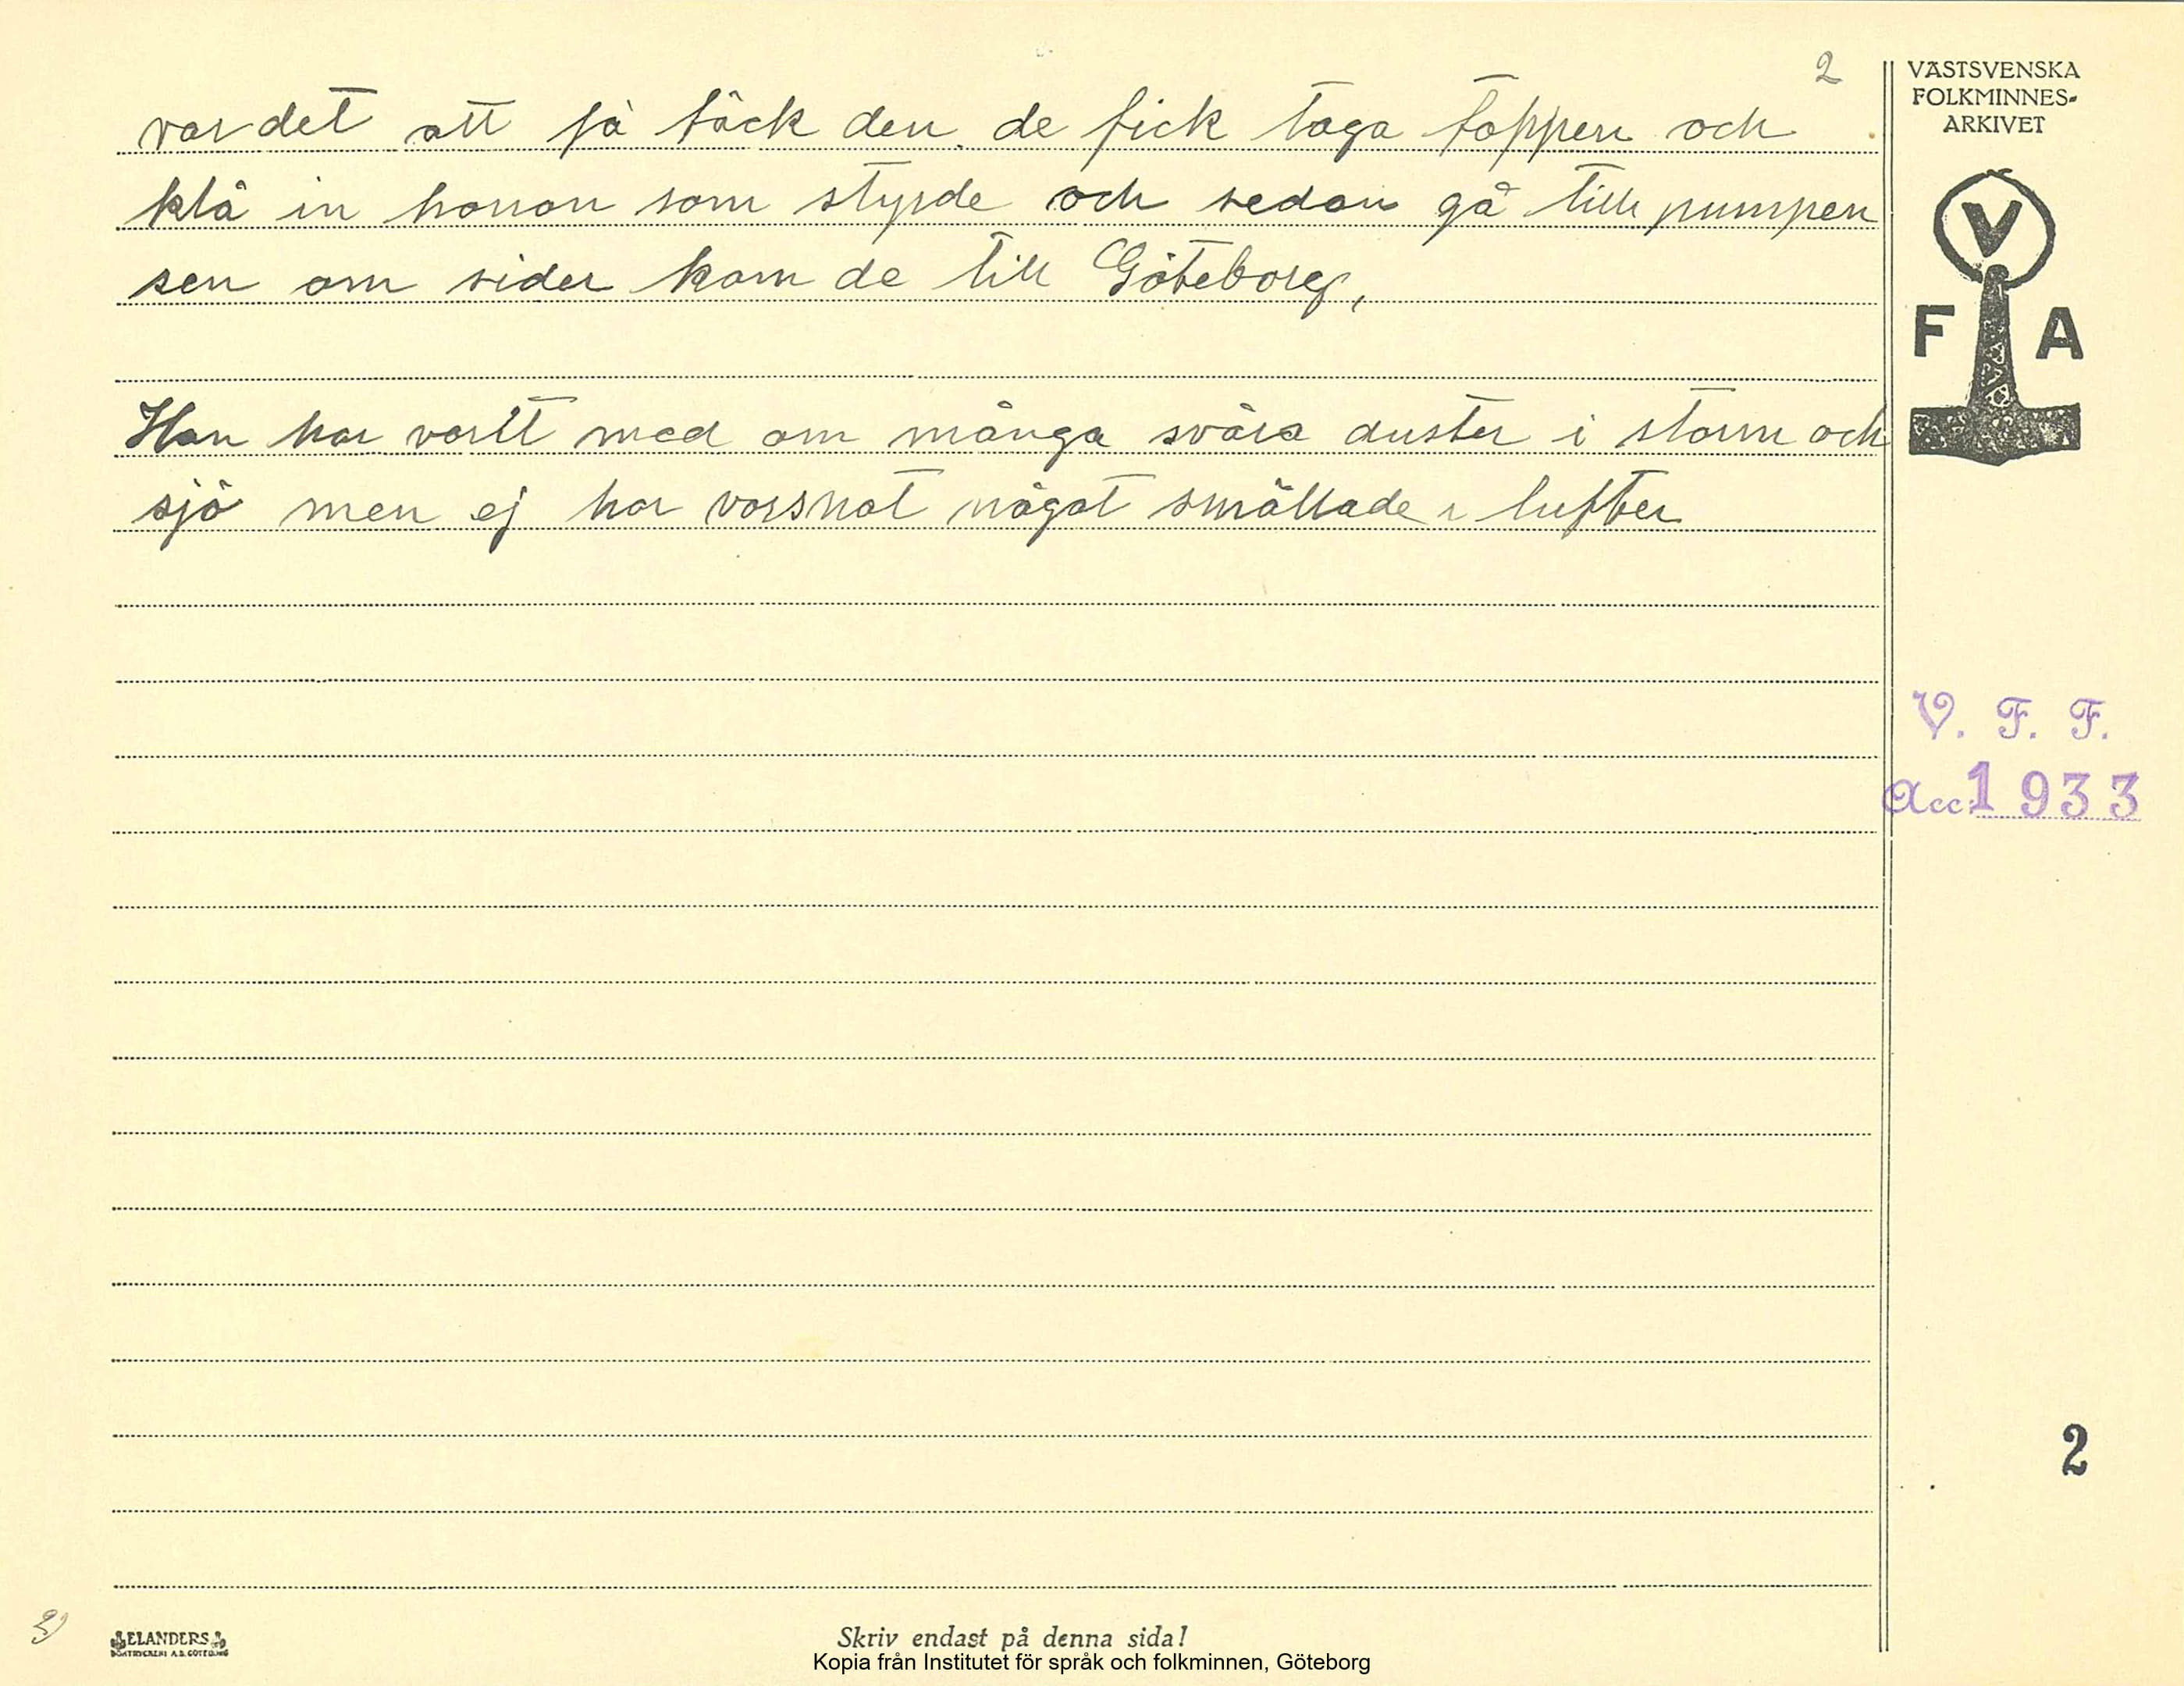 2
var det att få täck den. de fick taga tåppen och
klä in honon som styrde och sedan gå till pumpen
sen om sider kom de till Göteborg,
Han har vartt med om många svåra duster i storm och
sjö men ej har varsnat något smällade i lufter
VÄSTSVENSKA
FOLKMINNES-
ARKIVET
V
F A
V. F. F.
Acc. 1933
2
ELANDERS
BOKTRYCKERI A.B. GÖTEBORG
Skriv endast på denna sida!
Kopia från Institutet för språk och folkminnen, Göteborg